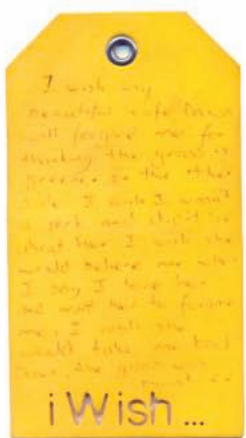 I wish my
beautiful wife Dawn
will forgive me for
thinking the grass is
greener on the other
side. I wish I wasn't
a jerk and
that her I wish she
would believe me when
I say I love her
and want her to forgive
me. I wish she
would take me back
the grass was
iWish...